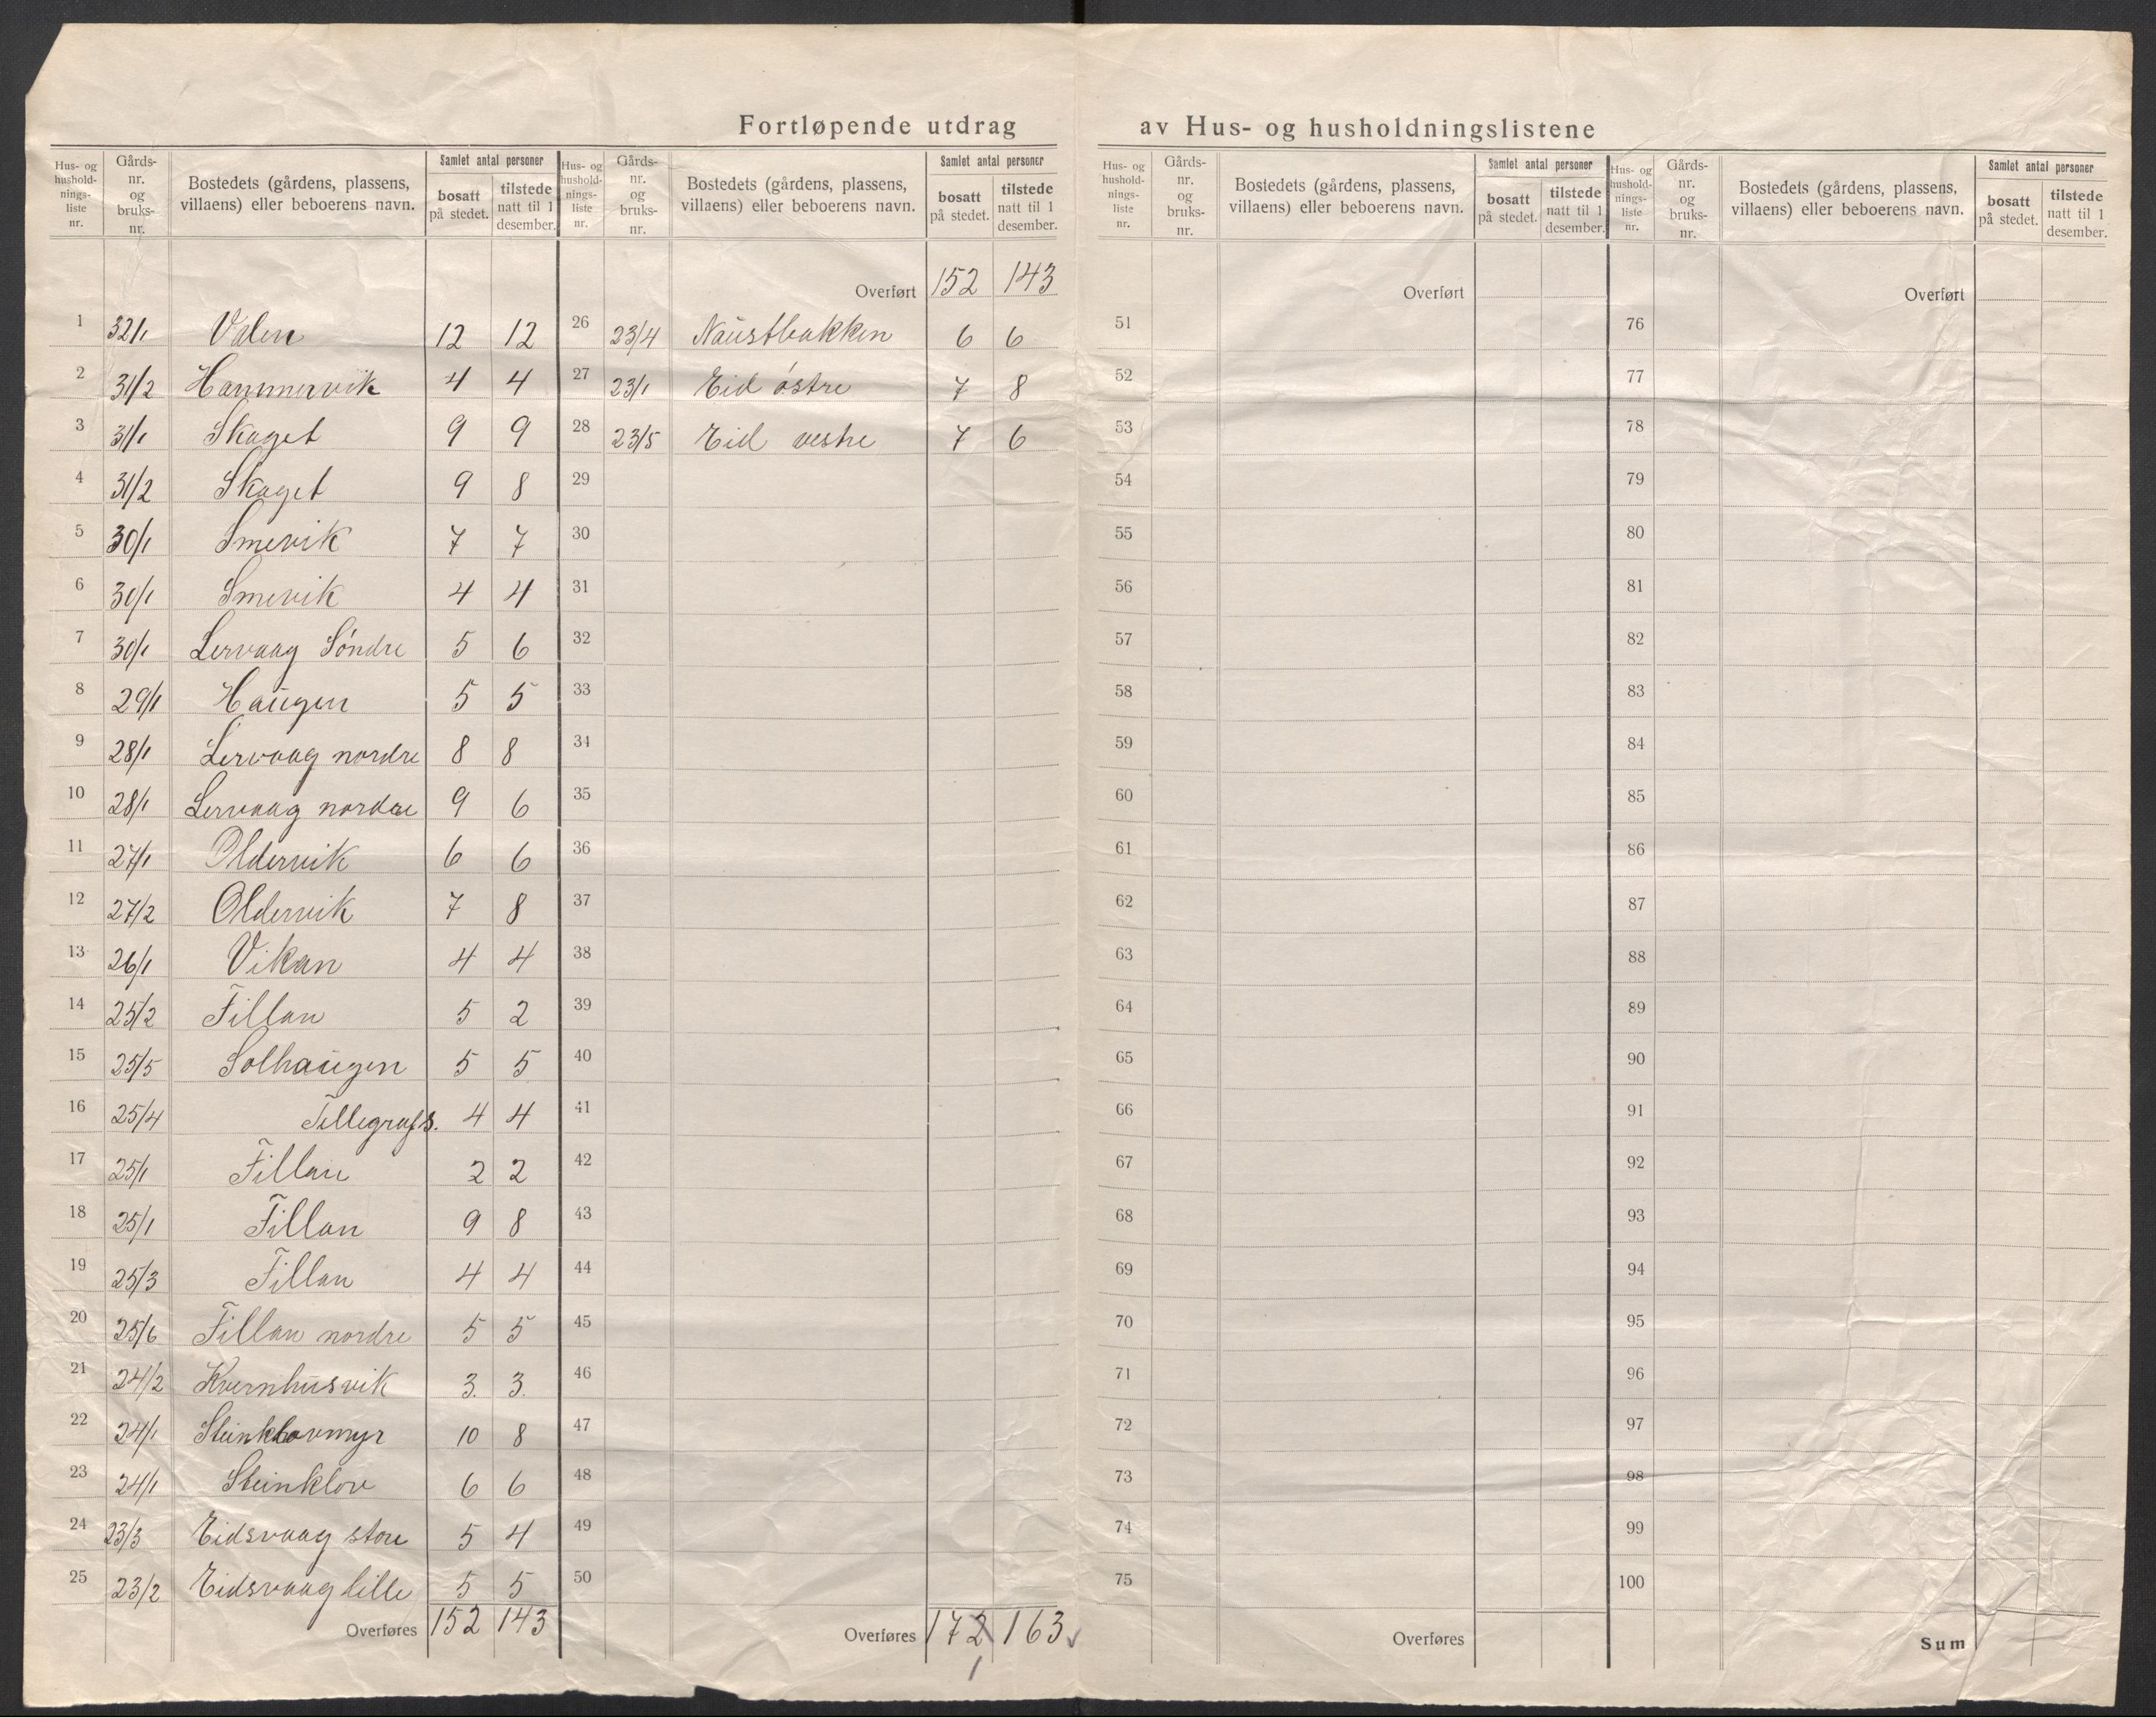 Fortløpende utdrag av Hus- og husholdningslistene
Hus- og husholdnings-liste nr. Gårds-nr. og bruks-nr. Bostedets (gårdens, plassens, villaens) eller beboerens navn. Samlet antal personer bosatt på stedet. tilstede natt til 1 desember.
Hus- og husholdnings-liste nr. Gårds-nr. og bruks-nr. Bostedets (gårdens, plassens, villaens) eller beboerens navn. Samlet antal personer bosatt på stedet. tilstede natt til 1 desember.
Hus- og husholdnings-liste nr. Gårds-nr. og bruks-nr. Bostedets (gårdens, plassens, villaens) eller beboerens navn. Samlet antal personer bosatt på stedet. tilstede natt til 1 desember.
Hus- og husholdnings-liste nr. Gårds-nr. og bruks-nr. Bostedets (gårdens, plassens, villaens) eller beboerens navn. Samlet antal personer bosatt på stedet. tilstede natt til 1 desember.
1 32/1 Valen 12 12
2 31/2 Hammervik 4 4
3 31/1 Skaget 9 9
4 31/2 Skaget 9 8
5 30/1 Smevik 7 7
6 30/1 Smevik 4 4
7 30/1 Lervaag Söndre 5 6
8 29/1 Haugen 5 5
9 28/1 Lervaag nordre 8 8
10 28/1 Lervaag nordre 9 6
11 27/1 Oldervik 6 6
12 27/2 Oldervik 7 8
13 26/1 Vikan 4 4
14 25/2 Fillan 5 2
15 25/5 Solhaugen 5 5
16 25/4 Tellegrafs. 4 4
17 25/1 Fillan 2 2
18 25/1 Fillan 9 8
19 25/3 Fillan 4 4
20 25/6 Fillan nordre 5 5
21 24/2 Kvernhusvik 3. 3.
22 24/1 Steinklovmyr 10 8
23 24/1 Steinklov 6 6
24 23/3 Eidsvaag store 5 4
25 23/2 Eidsvaag lille 5 5
Overføres 152 143
Overført 152 143
26 23/4 Naustbakken 6 6
27 23/1 Eid östre 7 8
28 23/5 Eid vestre 7 6
29
30
31
32
33
34
35
36
37
38
39
40
41
42
43
44
45
46
47
48
49
50
Overføres 172 163
1
Overført
51
52
53
54
55
56
57
58
59
60
61
62
63
64
65
66
67
68
69
70
71
72
73
74
75
Overføres
Overført
76
77
78
79
80
81
82
83
84
85
86
87
88
89
90
91
92
93
94
95
96
97
98
99
100
Sum